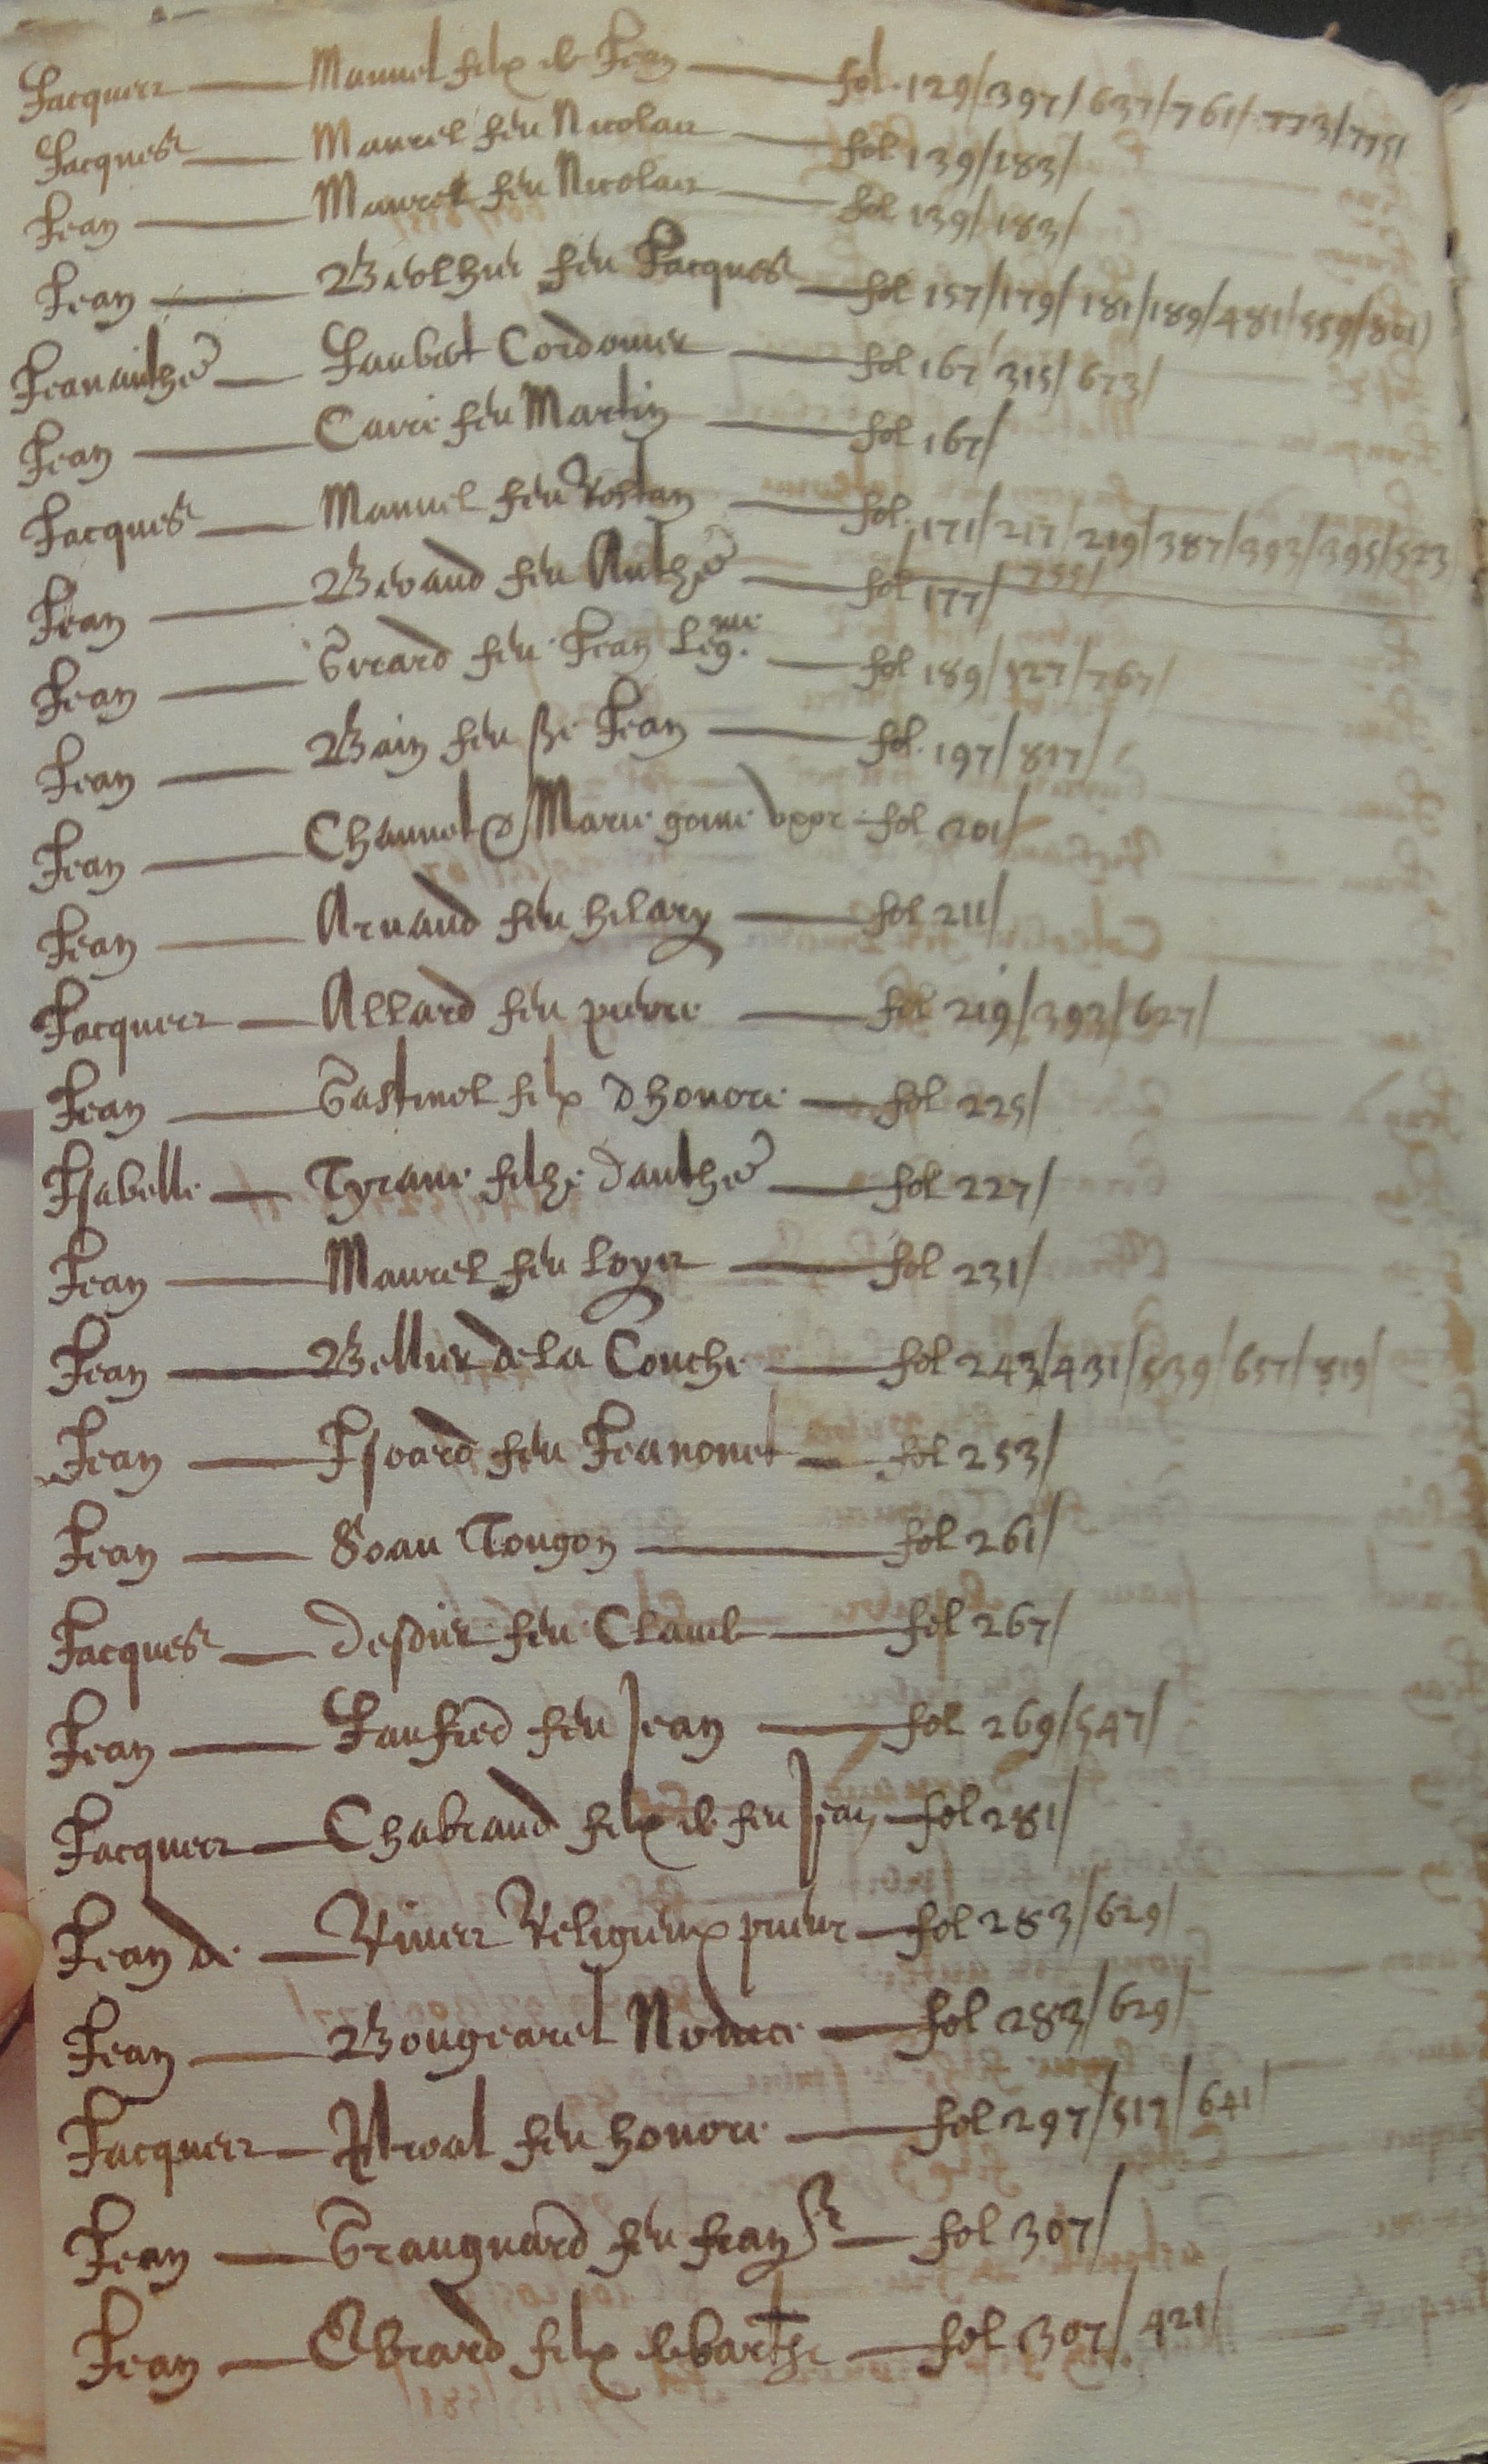 Jacques — Manuel filz de Jean — fol. 129/397/637/761/773/775/
Jacques — Maurel feu Nicolas — fol 139/183/
Jean — Maurel feu Nicolas — fol 139/183/
Jean — Berthue feu Jacques — fol 157/179/181/189/481/559/801/
Jeananthe — Jaubert Cordonier — fol 167/315/673/
Jean — Cavie feu Martin — fol 167/
Jacques — Manuel feu Rostan — fol. 171/217/219/387/393/395/523
755/
Jean — Beraud feu Anthe — fol 177/
Jean — Girard feu Jean Leg.me — fol 189/527/767/
Jean — Bain feu Jean — fol. 197/817/
Jean — Chaunet & Marie uxor fol 201/
Jean — Arnaud feu hilary — fol 211/
Jacques — Allard feu pierre — fol 219/393/627/
Jean — Gastinel filz d honore — fol 225/
Isabelle — Tyrane filhe d'anthe — fol 227/
Jean — Maurel feu Loys — fol 231/
Jean — Bellue de La Couche — fol 243/431/539/657/819/
Jean — Isoard feu Jeanonet — fol 253/
Jean — Soau Tougon — fol 261/
Jacques — Desdier feu Claude — fol 267/
Jean — Jaufred feu Jean — fol 269/547/
Jacques — Chabraud filz de feu Jean — fol 281/
Jean de — Vivier Religieux prieur — fol 283/629/
Jean — Bougearel No.re — fol 283/629/
Jacques — feu honore — fol 297/517/641/
Jean — feu — fol 307/
Jean — Ebrard filz de barthe — fol 307/421/